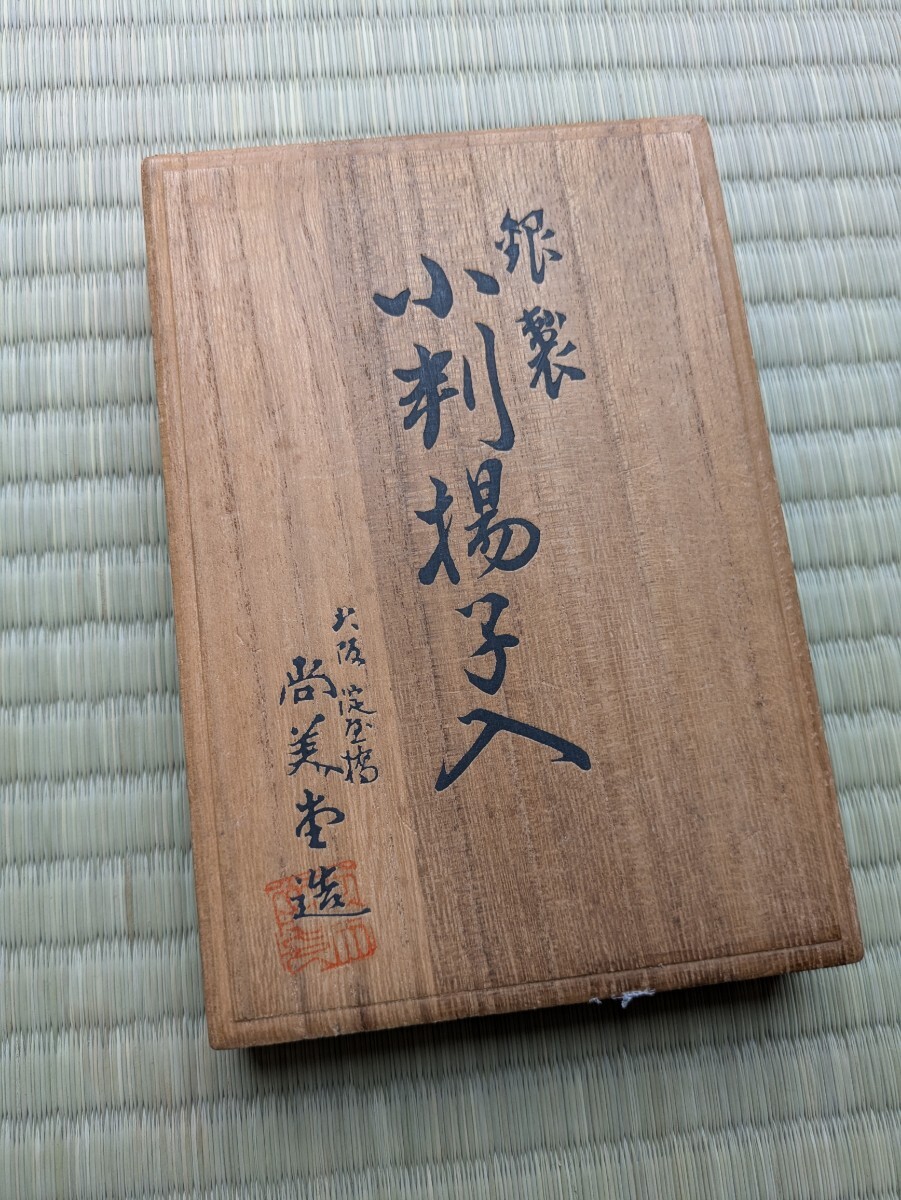 銀製
小判揚子入
大阪 淀屋橋
尚美堂造